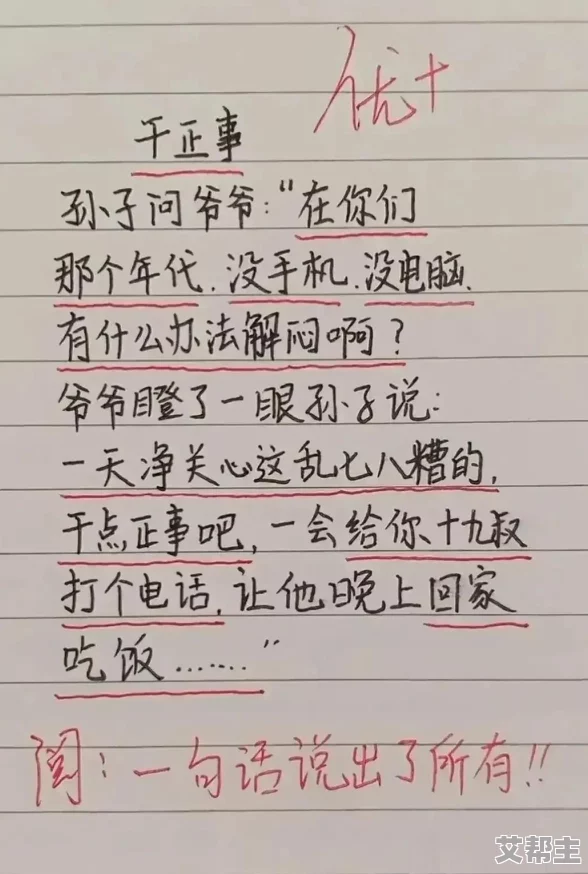 优+
干正事
孙子问爷爷:“在你们
那个年代,没手机,没电脑,
有什么办法解闷啊?
爷爷瞪了一眼孙子说:
一天净关心这乱七八糟的,
干点正事吧,一会给你十九叔
打个电话,让他晚上回家
吃饭……”
阅:一句话说出了所有!!
艾帮主